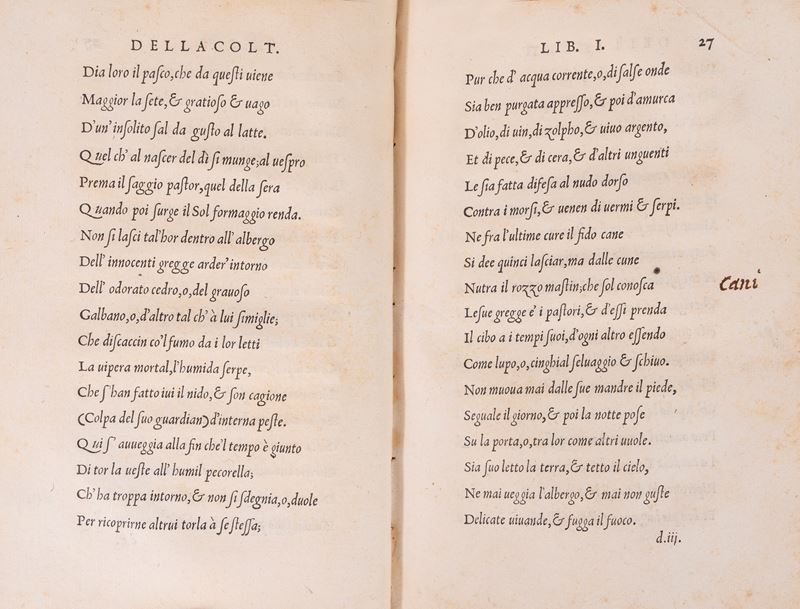 DELLA COLT.
Dia loro il paſco,che da queſti uiene
Maggior la ſete,& gratioſo & uago
D'un' inſolito ſal da guſto al latte.
Quel ch' al naſcer del dì ſi munge;al ueſpro
Prema il ſaggio paſtor,quel della ſera
Quando poi ſurge il Sol formaggio renda.
Non ſi laſci tal'hor dentro all' albergo
Dell' innocenti gregge arder' intorno
Dell' odorato cedro,o,del grauoſo
Galbano,o,d'altro tal ch' à lui ſimiglie;
Che diſcaccin co'l fumo da i lor letti
La uipera mortal,l'humida ſerpe,
Che ſ' han fatto iui il nido,& ſon cagione
(Colpa del ſuo guardian) d'interna peſte.
Qui ſ' auueggia alla fin che'l tempo è giunto
Di tor la ueſte all' humil pecorella;
Ch' ha troppa intorno,& non ſi ſdegnia,o,duole
Per ricoprirne altrui torla à ſe ſteſſa;
LIB. I. 27
Pur che d' acqua corrente,o,di ſalſe onde
Sia ben purgata appreſſo,& poi d'amurca
D'olio,di uin,di zolpho,& uiuo argento,
Et di pece,& di cera,& d'altri unguenti
Le ſia fatta difeſa al nudo dorſo
Contra i morſi,& uenen di uermi & ſerpi.
Ne fra l'ultime cure il fido cane
Si dee quinci laſciar,ma dalle cune
Nutra il rozzo maſtin;che ſol conoſca
Cani
Le ſue gregge e' i paſtori,& d'eſſi prenda
Il cibo a i tempi ſuoi,d'ogni altro eſſendo
Come lupo,o,cinghial ſeluaggio & ſchiuo.
Non muoua mai dalle ſue mandre il piede,
Seguale il giorno,& poi la notte poſe
Su la porta,o,tra lor come altri uuole.
Sia ſuo letto la terra,& tetto il cielo,
Ne mai ueggia l'albergo,& mai non guſte
Delicate uiuande,& fugga il fuoco.
d.iij.